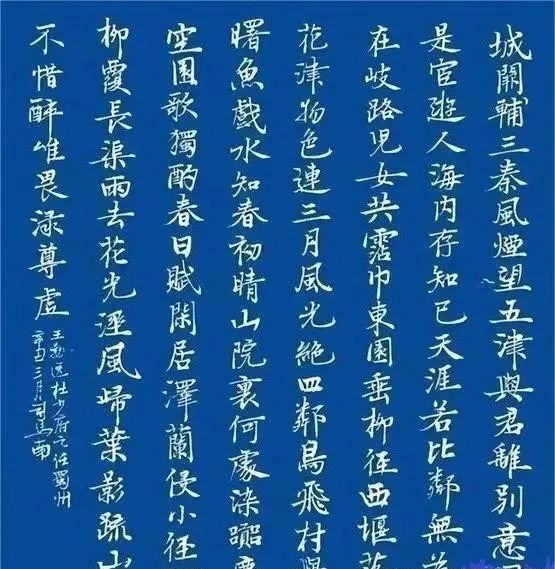 城闕輔三秦風煙望五津與君離別意
是宦遊人海內存知已天涯若比鄰無
在岐路兒女共霑巾東園垂柳徑西堰落
花津物色連三月風光絕四鄰鳥飛村
曙魚戲水知春初晴山院裏何處染囂
空園歌獨酌春日賦閑居澤蘭侵小徑
柳覆長渠雨去花光溼風歸葉影疏山
不惜醉唯畏淥尊虛
王勃送杜少府之任蜀州
辛丑三月司馬南